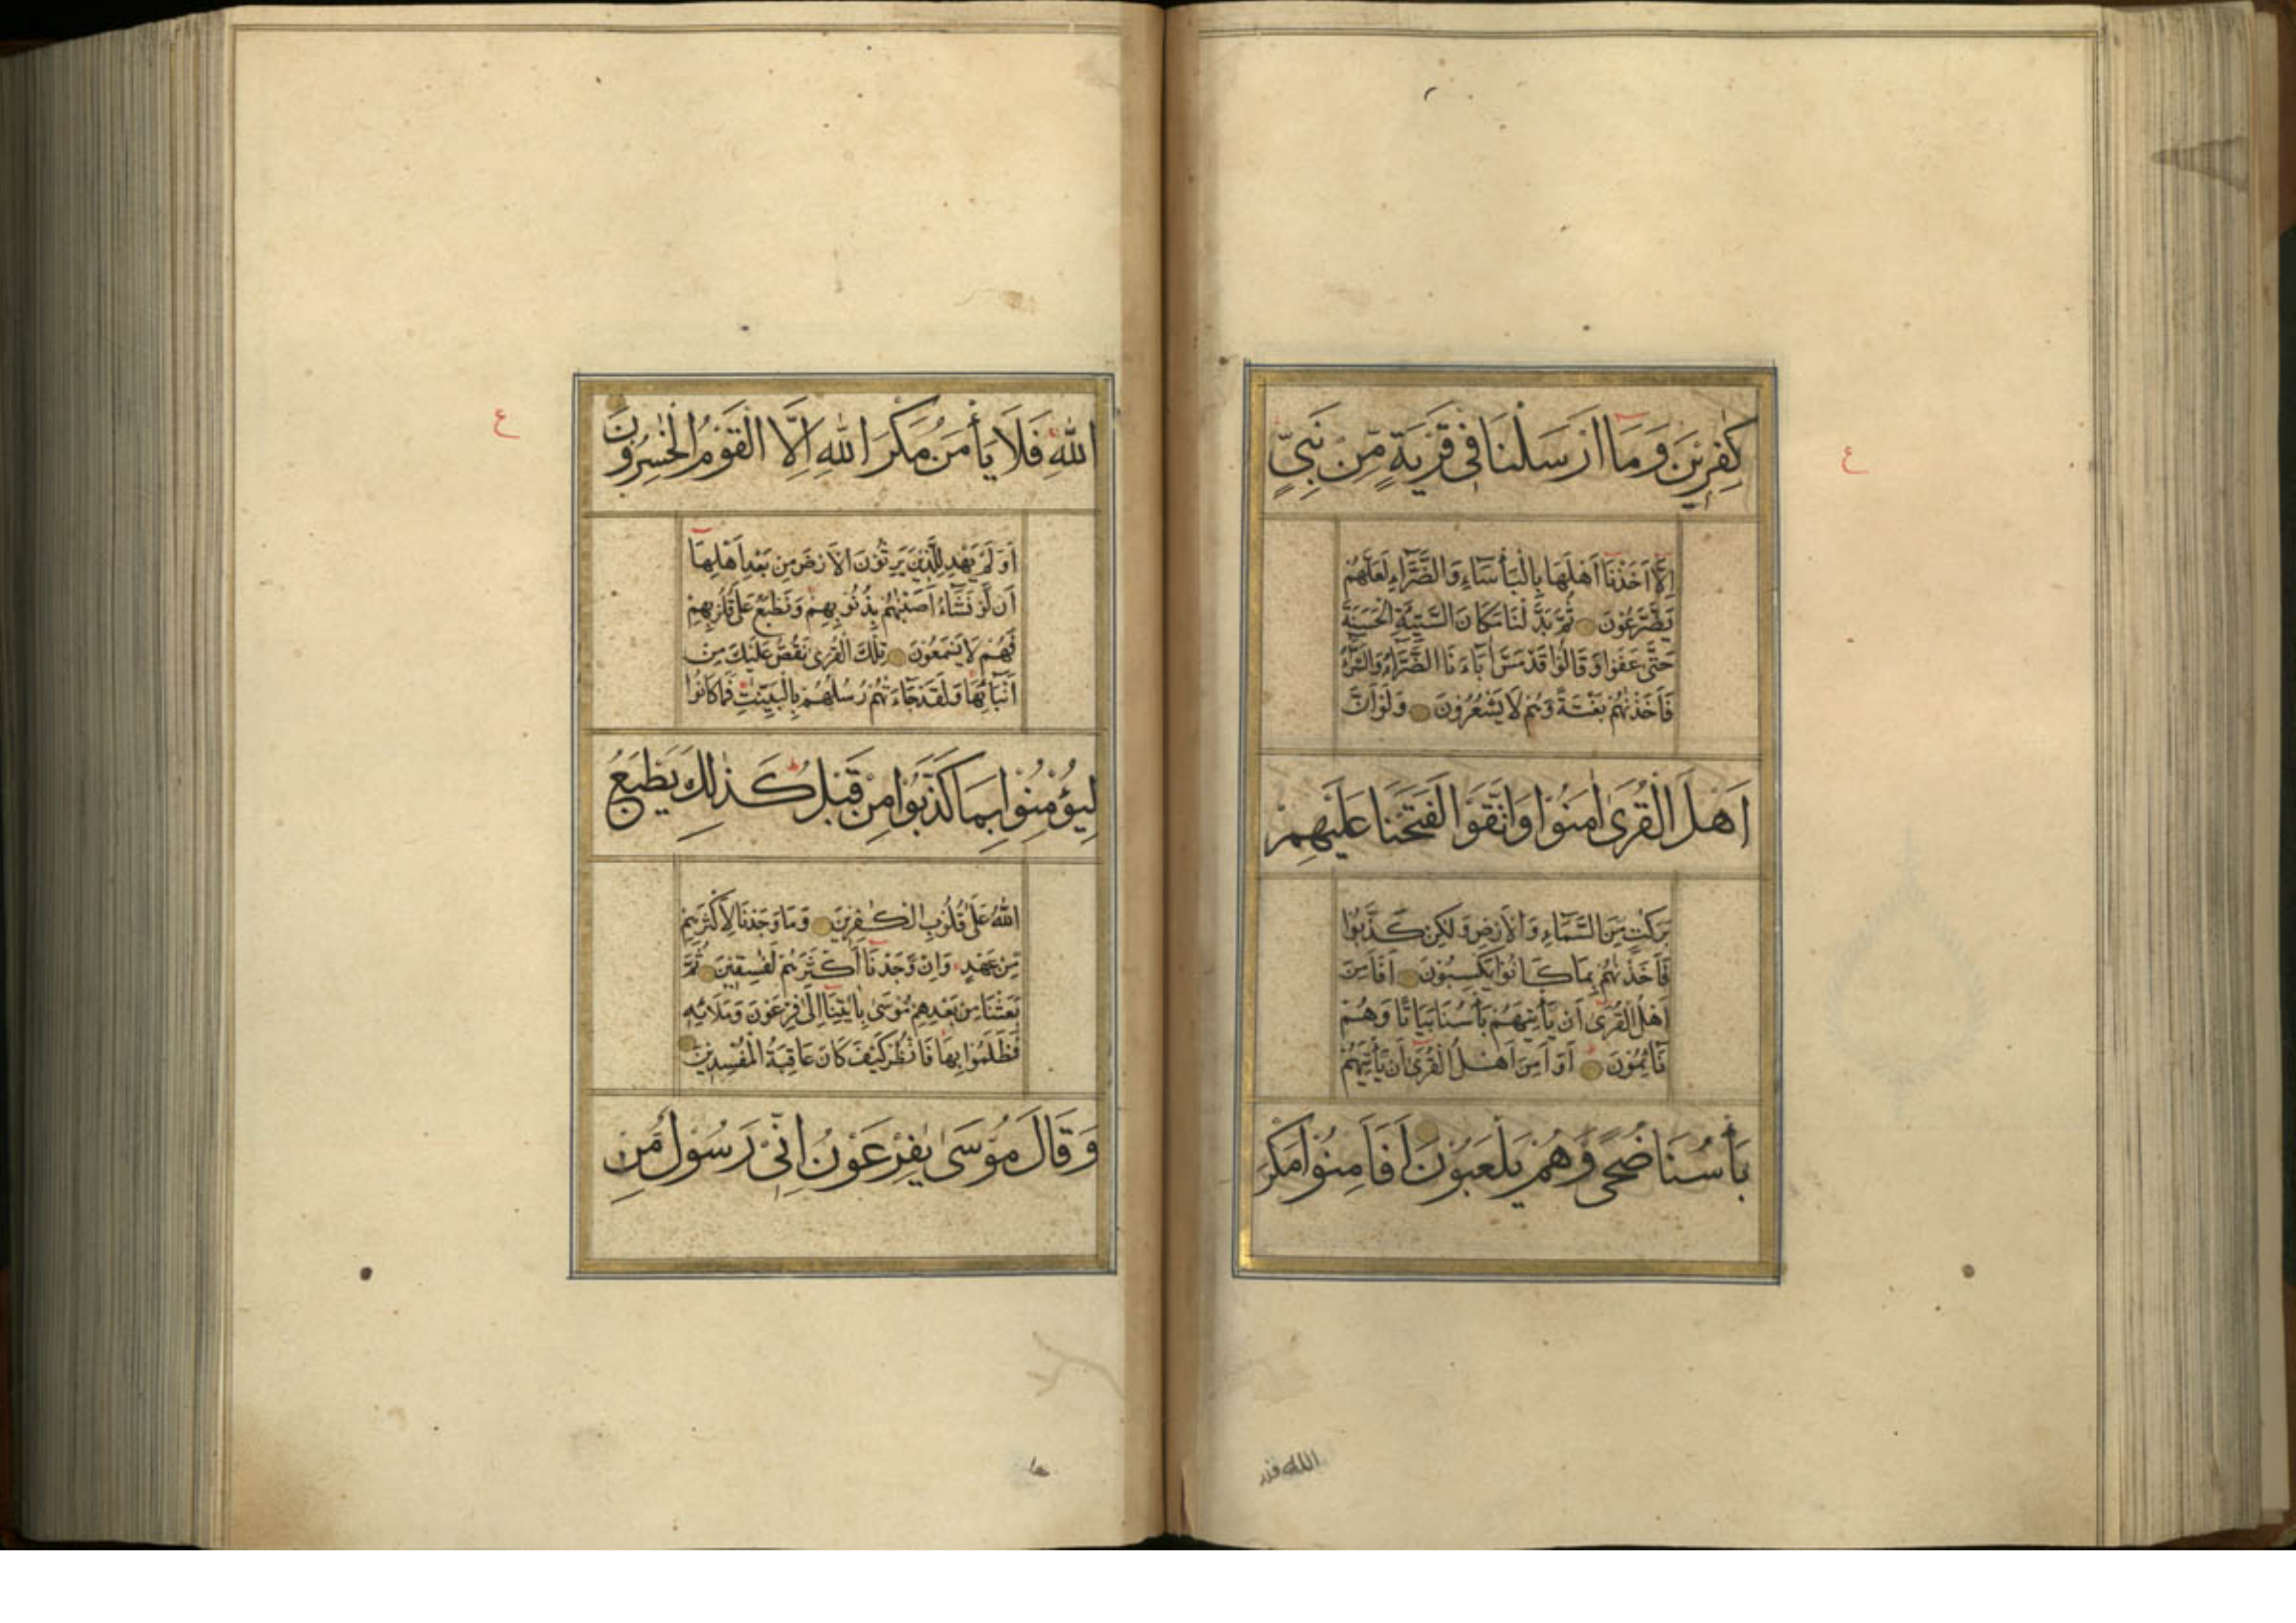 كٰفِرِيْنَ وَمَا اَرْسَلْنَا فِيْ قَرْيَةٍ مِّنْ نَّبِيٍّ
اِلَّا اَخَذْنَا اَهْلَهَا بِالْبَأْسَاءِ وَالضَّرَّاءِ لَعَلَّهُمْ
يَضَّرَّعُوْنَ ثُمَّ بَدَّلْنَا مَكَانَ السَّيِّئَةِ الْحَسَنَةَ
حَتّٰى عَفَوْا وَقَالُوْا قَدْ مَسَّ اٰبَاءَنَا الضَّرَّاءُ وَالسَّرَّاءُ
فَاَخَذْنٰهُمْ بَغْتَةً وَهُمْ لَا يَشْعُرُوْنَ وَلَوْ اَنَّ
اَهْلَ الْقُرٰى اٰمَنُوْا وَاتَّقَوْا لَفَتَحْنَا عَلَيْهِمْ
بَرَكٰتٍ مِّنَ السَّمَاءِ وَالْاَرْضِ وَلٰكِنْ كَذَّبُوْا
فَاَخَذْنٰهُمْ بِمَا كَانُوْا يَكْسِبُوْنَ اَفَاَمِنَ
اَهْلُ الْقُرٰى اَنْ يَّأْتِيَهُمْ بَأْسُنَا بَيَاتًا وَهُمْ
نَائِمُوْنَ اَوَاَمِنَ اَهْلُ الْقُرٰى اَنْ يَّأْتِيَهُمْ
بَأْسُنَا ضُحًى وَهُمْ يَلْعَبُوْنَ اَفَاَمِنُوْا مَكْرَ
الله فلا
ع
اللّٰهِ فَلَا يَأْمَنُ مَكْرَ اللّٰهِ اِلَّا الْقَوْمُ الْخٰسِرُوْنَ
اَوَلَمْ يَهْدِ لِلَّذِيْنَ يَرِثُوْنَ الْاَرْضَ مِنْ بَعْدِ اَهْلِهَا
اَنْ لَّوْ نَشَاءُ اَصَبْنٰهُمْ بِذُنُوْبِهِمْ وَنَطْبَعُ عَلٰى قُلُوْبِهِمْ
فَهُمْ لَا يَسْمَعُوْنَ تِلْكَ الْقُرٰى نَقُصُّ عَلَيْكَ مِنْ
اَنْبَائِهَا وَلَقَدْ جَاءَتْهُمْ رُسُلُهُمْ بِالْبَيِّنٰتِ فَمَا كَانُوْا
لِيُؤْمِنُوْا بِمَا كَذَّبُوْا مِنْ قَبْلُ كَذٰلِكَ يَطْبَعُ
اللّٰهُ عَلٰى قُلُوْبِ الْكٰفِرِيْنَ وَمَا وَجَدْنَا لِاَكْثَرِهِمْ
مِّنْ عَهْدٍ وَاِنْ وَّجَدْنَا اَكْثَرَهُمْ لَفٰسِقِيْنَ ثُمَّ
بَعَثْنَا مِنْ بَعْدِهِمْ مُّوْسٰى بِاٰيٰتِنَا اِلٰى فِرْعَوْنَ وَمَلَائِهِ
فَظَلَمُوْا بِهَا فَانْظُرْ كَيْفَ كَانَ عَاقِبَةُ الْمُفْسِدِيْنَ
وَقَالَ مُوْسٰى يٰفِرْعَوْنُ اِنِّيْ رَسُوْلٌ مِّنْ
ع